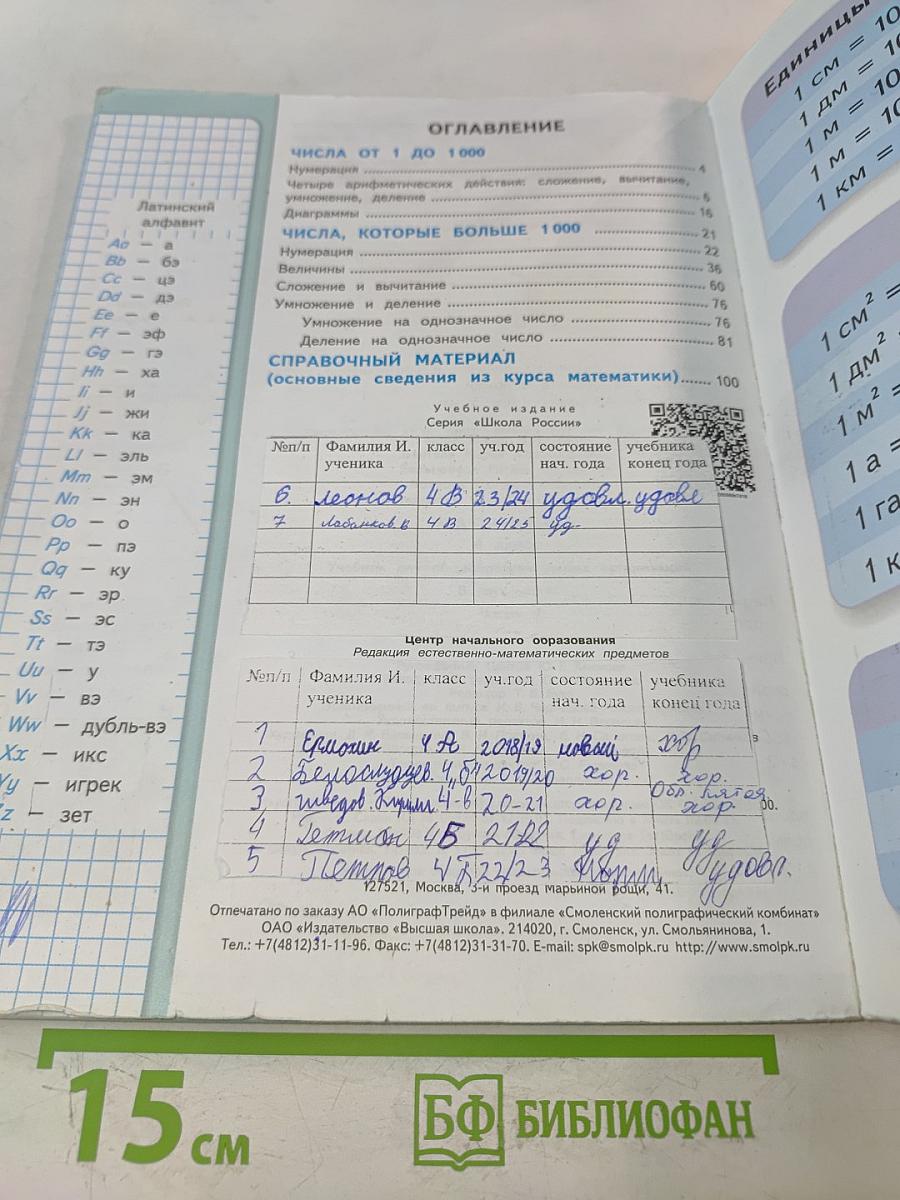 Латинский
алфавит
Aa — а
Bb — бэ
Cc — цэ
Dd — дэ
Ee — е
Ff — эф
Gg — гэ
Hh — ха
Ii — и
Jj — жи
Kk — ка
Ll — эль
Mm — эм
Nn — эн
Oo — о
Pp — пэ
Qq — ку
Rr — эр
Ss — эс
Tt — тэ
Uu — у
Vv — вэ
Ww — дубль-вэ
Xx — икс
Yy — игрек
Zz — зет
ОГЛАВЛЕНИЕ
ЧИСЛА ОТ 1 ДО 1000
Нумерация 4
Четыре арифметических действия: сложение, вычитание,
умножение, деление 6
Диаграммы 16
ЧИСЛА, КОТОРЫЕ БОЛЬШЕ 1000 21
Нумерация 22
Величины 36
Сложение и вычитание 60
Умножение и деление 76
Умножение на однозначное число 76
Деление на однозначное число 81
СПРАВОЧНЫЙ МАТЕРИАЛ
(основные сведения из курса математики) 100
Учебное издание
Серия «Школа России»
№п/п Фамилия И. ученика класс уч.год состояние нач. года учебника конец года
6. Леонов 4 В 23/24 удовл. удовл
7 4 В 24/25 уд-
Центр начального образования
Редакция естественно-математических предметов
№п/п Фамилия И. ученика класс уч.год состояние нач. года учебника конец года
1 Ермохин 4 А 2018/19 новый хор
2 2019/20 хор. хор.
3 4-в 20-21 хор. хор.
4 4Б 21-22 уд уд
5 Петров 22/23 удовл.
127521, Москва, 3-й проезд Марьиной рощи, 41.
Отпечатано по заказу АО «ПолиграфТрейд» в филиале «Смоленский полиграфический комбинат»
ОАО «Издательство «Высшая школа». 214020, г. Смоленск, ул. Смольянинова, 1.
Тел.: +7(4812)31-11-96. Факс: +7(4812)31-31-70. E-mail: spk@smolpk.ru http://www.smolpk.ru
Единицы
1 см = 10
1 дм = 10
1 м = 10
1 м = 10
1 км =
1 см² =
1 дм²
1 м² =
1 а =
1 га
1 к
15 см
БФ БИБЛИОФАН